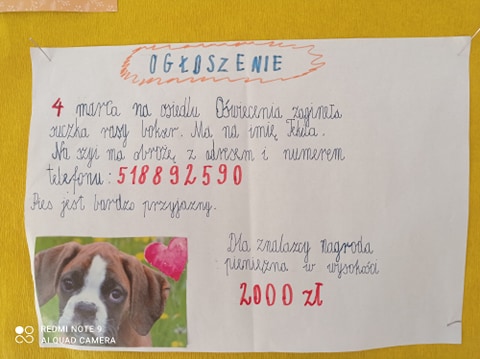 OGŁOSZENIE
4 marca na osiedlu Oświecenia zaginęła
suczka rasy bokser. Ma na imię Tekila.
Na szyi ma obrożę z adresem i numerem
telefonu: 518892590
Pies jest bardzo przyjazny.
Dla znalazcy nagroda
pieniężna w wysokości
2000 zł
REDMI NOTE 9
AI QUAD CAMERA